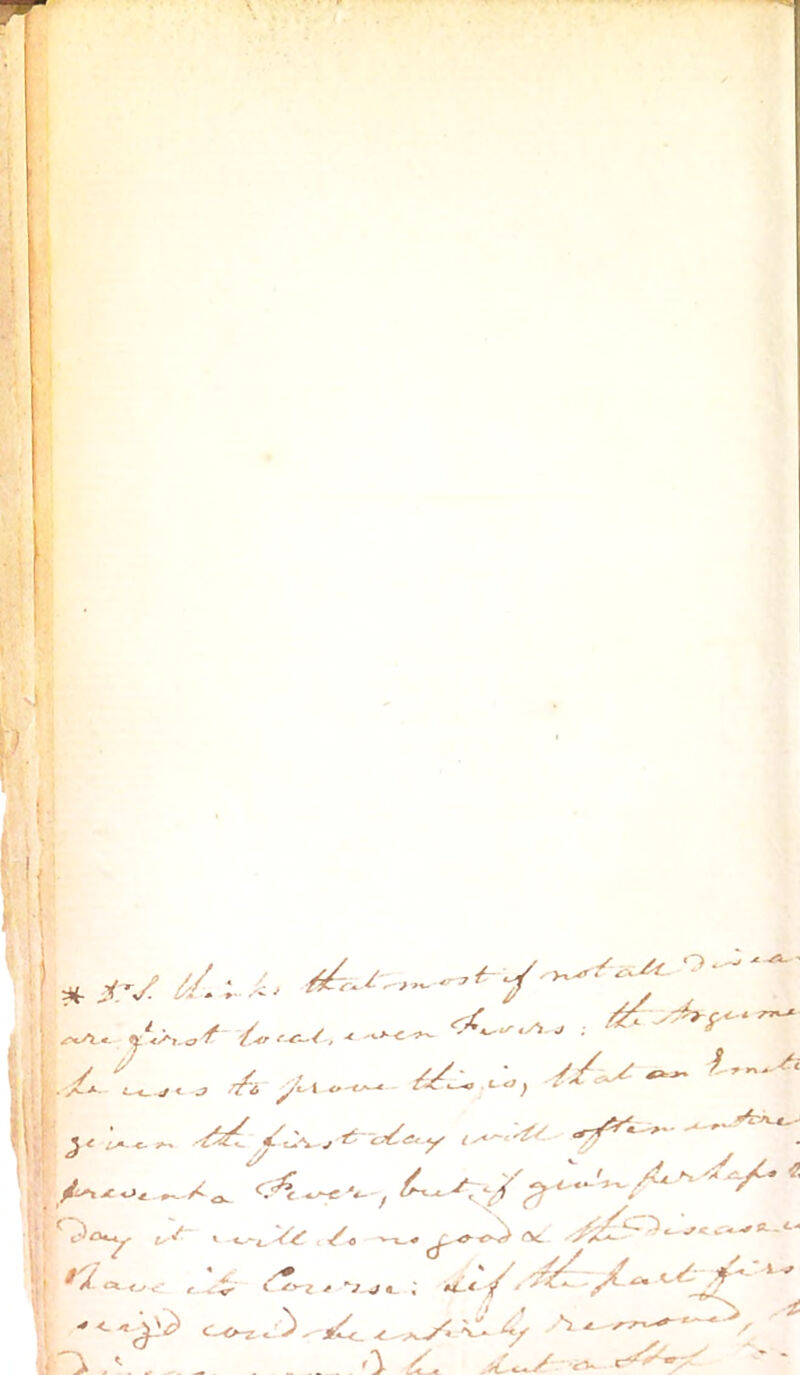 * Dr. S. thinks that most if not all Disea
are first local, even Fevers; the Argume
he uses to prove this is, that an Emeti
given the first day will often entire
prevent a Fever, but if giv'n perhaps
day it will do no good & the Disease
have its Course: & if the part firs
seiz'd cou'd be entirely remov'd,
be put a Stop to